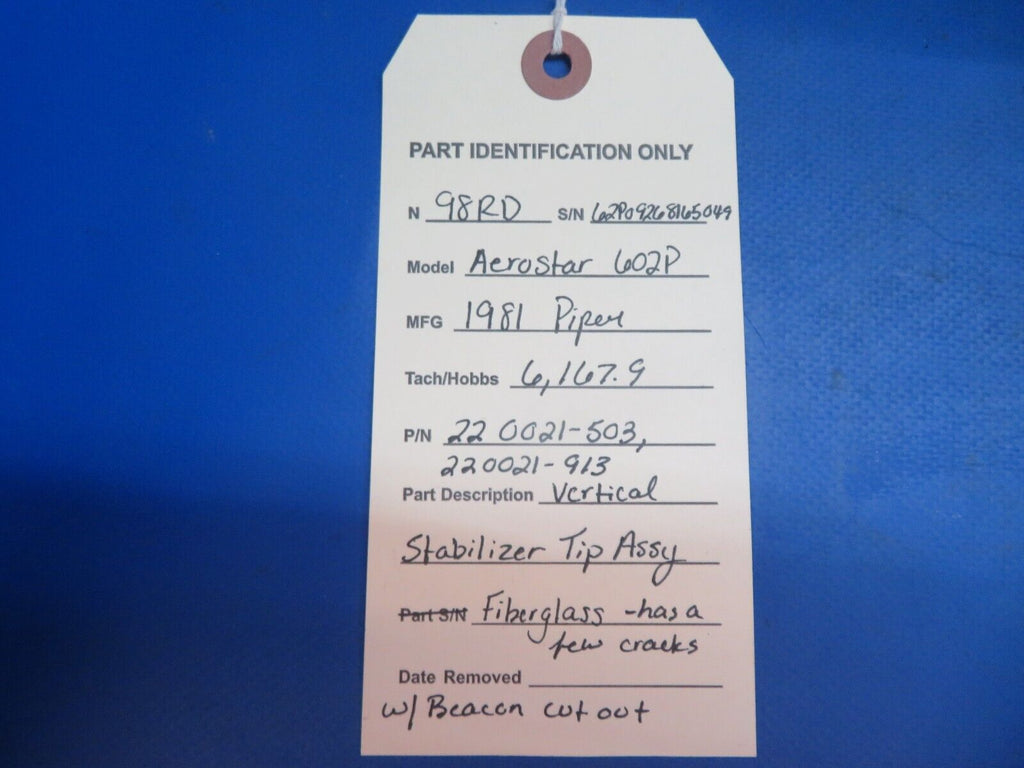 PART IDENTIFICATION ONLY
N 98RD S/N 62P09268165049
Model Aerostar 602P
MFG 1981 Piper
Tach/Hobbs 6,167.9
P/N 22 0021-503,
220021-913
Part Description Vertical
Stabilizer Tip Assy
Part S/N Fiberglass -has a
few cracks
Date Removed
w/ Beacon cut out